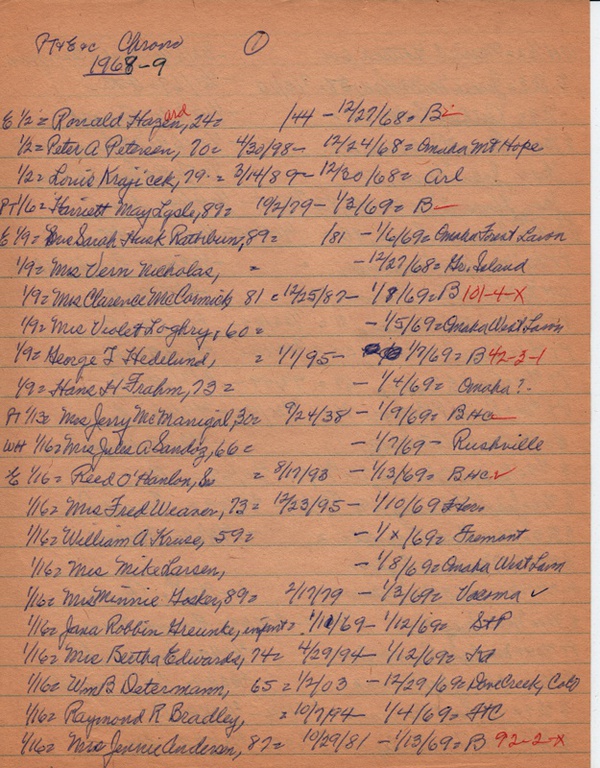 PT & Enc Chrono ①
1968-9
E 1/2 = Ronald Hazen, ard 24 = /44 - 12/27/68 = B
1/2 = Peter A Petersen, 70 = 4/30/98 - 12/24/68 = Omaha Mt Hope
1/2 = Louis Krajicek, 79 = 2/14/89 - 12/30/68 = Arl
PT 1/6 = Harriett May Lysle, 89 = 10/2/79 - 1/3/69 = B
E 1/9 = Mrs Sarah Husk Rathbun, 89 = /81 - 1/6/69 = Omaha Forest Lawn
1/9 = Mrs Vern Nickolas, = - 12/27/68 = Gr. Island
1/9 = Mrs Clarence McCormick 81 = 12/25/87 - 1/8/69 = B 101-4-X
1/9 = Mrs Violet Loghry, 60 = - 1/5/69 = Omaha West Lawn
1/9 = George F Hedelund, = 1/1/95 - 1/7/69 = B 42-3-1
1/9 = Hans H Frahm, 73 = - 1/4/69 = Omaha ?
PT 1/13 = Mrs Jerry McManigal, 30 = 9/24/38 - 1/9/69 = BHC
WH 1/16 = Mrs Jules A Sandoz, 66 = - 1/7/69 - Rushville
E 1/16 = Reed O'Hanlon, Sr = 8/17/93 - 1/13/69 = BHC ✓
1/16 = Mrs Fred Weaver, 73 = 12/23/95 - 1/10/69
1/16 = William A Kruse, 59 = - 1/x/69 = Fremont
1/16 = Mrs Mike Larsen, - 1/8/69 = Omaha West Lawn
1/16 = Mrs Minnie Fosker, 89 = 2/17/79 - 1/3/69 = Vacoma ✓
1/16 = Jana Robbin Greunke, infant = 1/11/69 - 1/12/69 = StP
1/16 = Mrs Bertha Edwards, 74 = 4/29/94 - 1/12/69 =
1/16 = Wm B Determann, 65 = 1/2/03 - 12/29/69 = Deer Creek, Colo
1/16 = Raymond R Bradley, = 10/7/94 - 1/4/69 = FtC
1/16 = Mrs Jennie Andersen, 87 = 10/29/81 - 1/13/69 = B 92-2-X